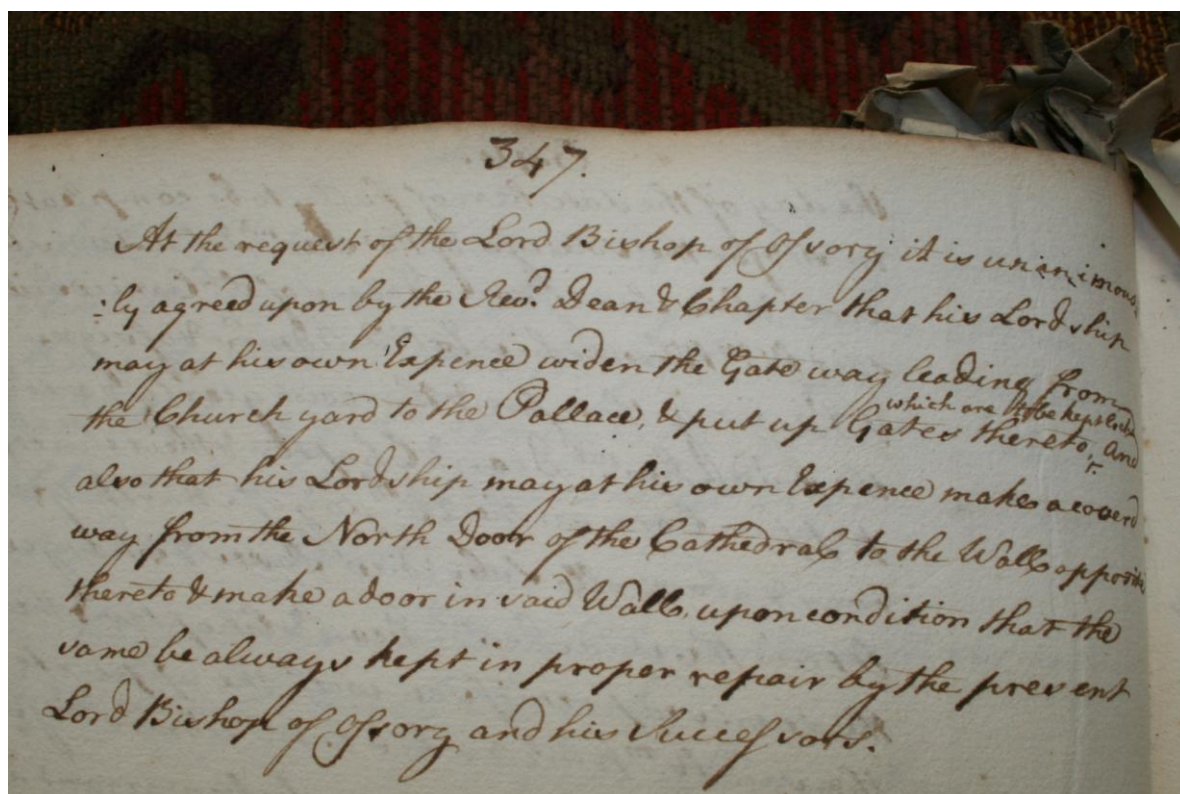 347.
At the request of the Lord Bishop of Ossory it is unanimous
:ly agreed upon by the Revd. Dean & Chapter that his Lordship
may at his own Expence widen the Gate way leading from
which are to be kept lockd
the Church yard to the Pallace, & put up Gates thereto, And
also that his Lordship may at his own Expence make a coverd
way from the North Door of the Cathedral to the Wall opposite
thereto & make a door in said Wall, upon condition that the
same be always kept in proper repair by the present
Lord Bishop of Ossory and his Successors.